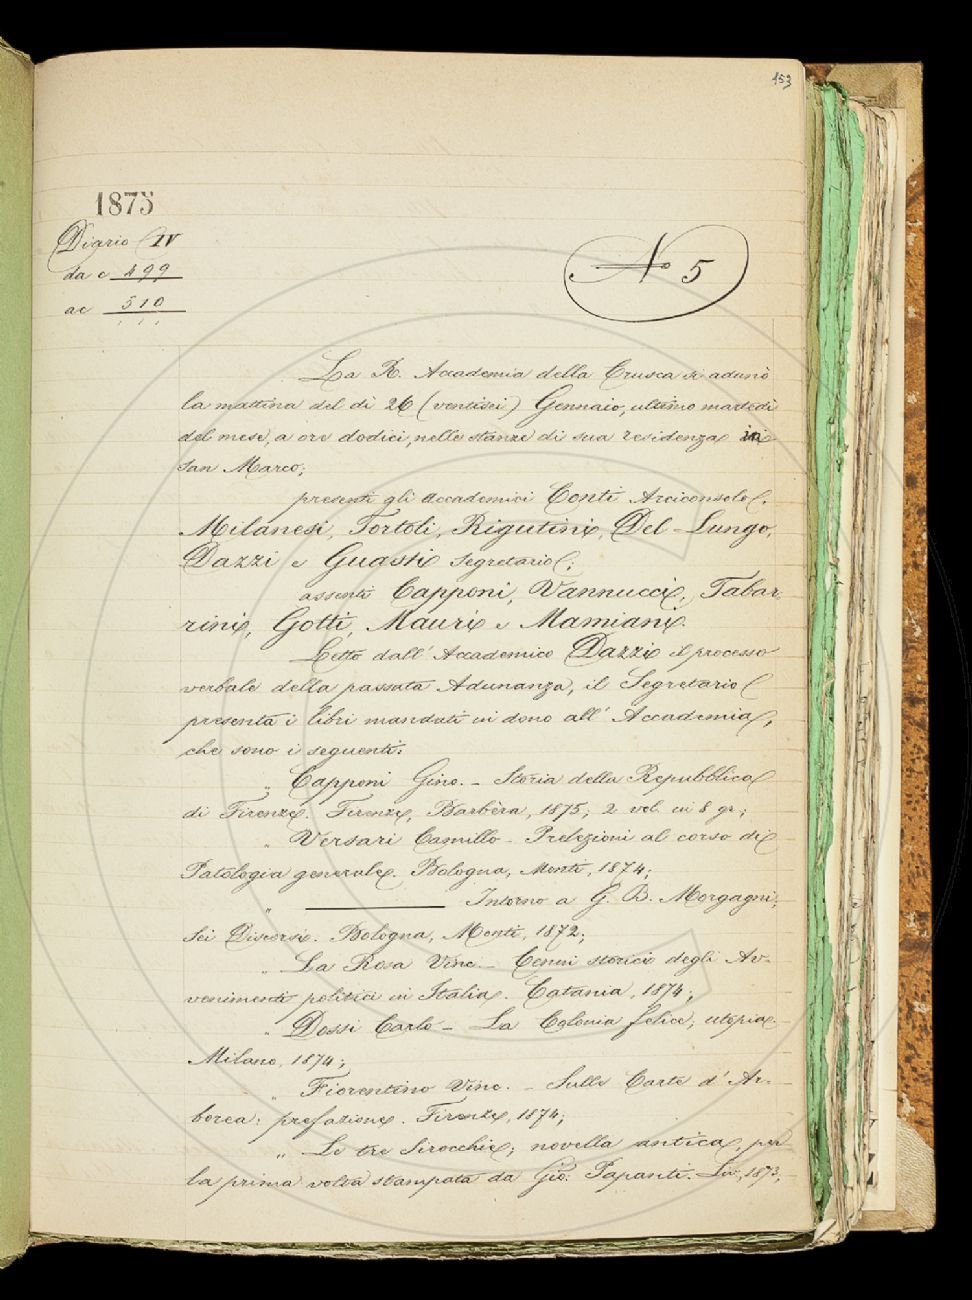 153
1875
Diario IV
da c 499
a c 510
No 5
La R. Accademia della Crusca si adunò
la mattina del dì 26 (ventisei) Gennaio, ultimo martedì
del mese, a ore dodici, nelle stanze di sua residenza in
San Marco;
presenti gli Accademici Conti Arciconsolo,
Milanesi, Tortoli, Rigutini, Del-Lungo,
Dazzi e Guasti Segretario;
assenti Capponi, Vannucci, Tabar-
rini, Gotti, Mauri e Mamiani.
Letto dall'Accademico Dazzi il processo
verbale della passata Adunanza, il Segretario
presenta i libri mandati in dono all'Accademia,
che sono i seguenti:
„ Capponi Gino. - Storia della Repubblica
di Firenze. Firenze, Barbèra, 1875; 2 vol. in 8 gr.;
„ Versari Camillo - Prelezioni al corso di
Patologia generale. Bologna, Monti, 1874;
„ ——— Intorno a G. B. Morgagni;
Sei Discorsi. Bologna, Monti, 1872;
„ La Rosa Vinc. - Cenni storici degli Av-
venimenti politici in Italia. Catania, 1874;
„ Dossi Carlo - La Colonia felice; utopia.
Milano, 1874;
„ Fiorentino Vinc. - Sulle Carte d'Ar-
borea: prefazione. Firenze, 1874;
„ Le tre Sirocchie; novella antica, per
la prima volta stampata da Gio. Papanti. Liv., 1873;